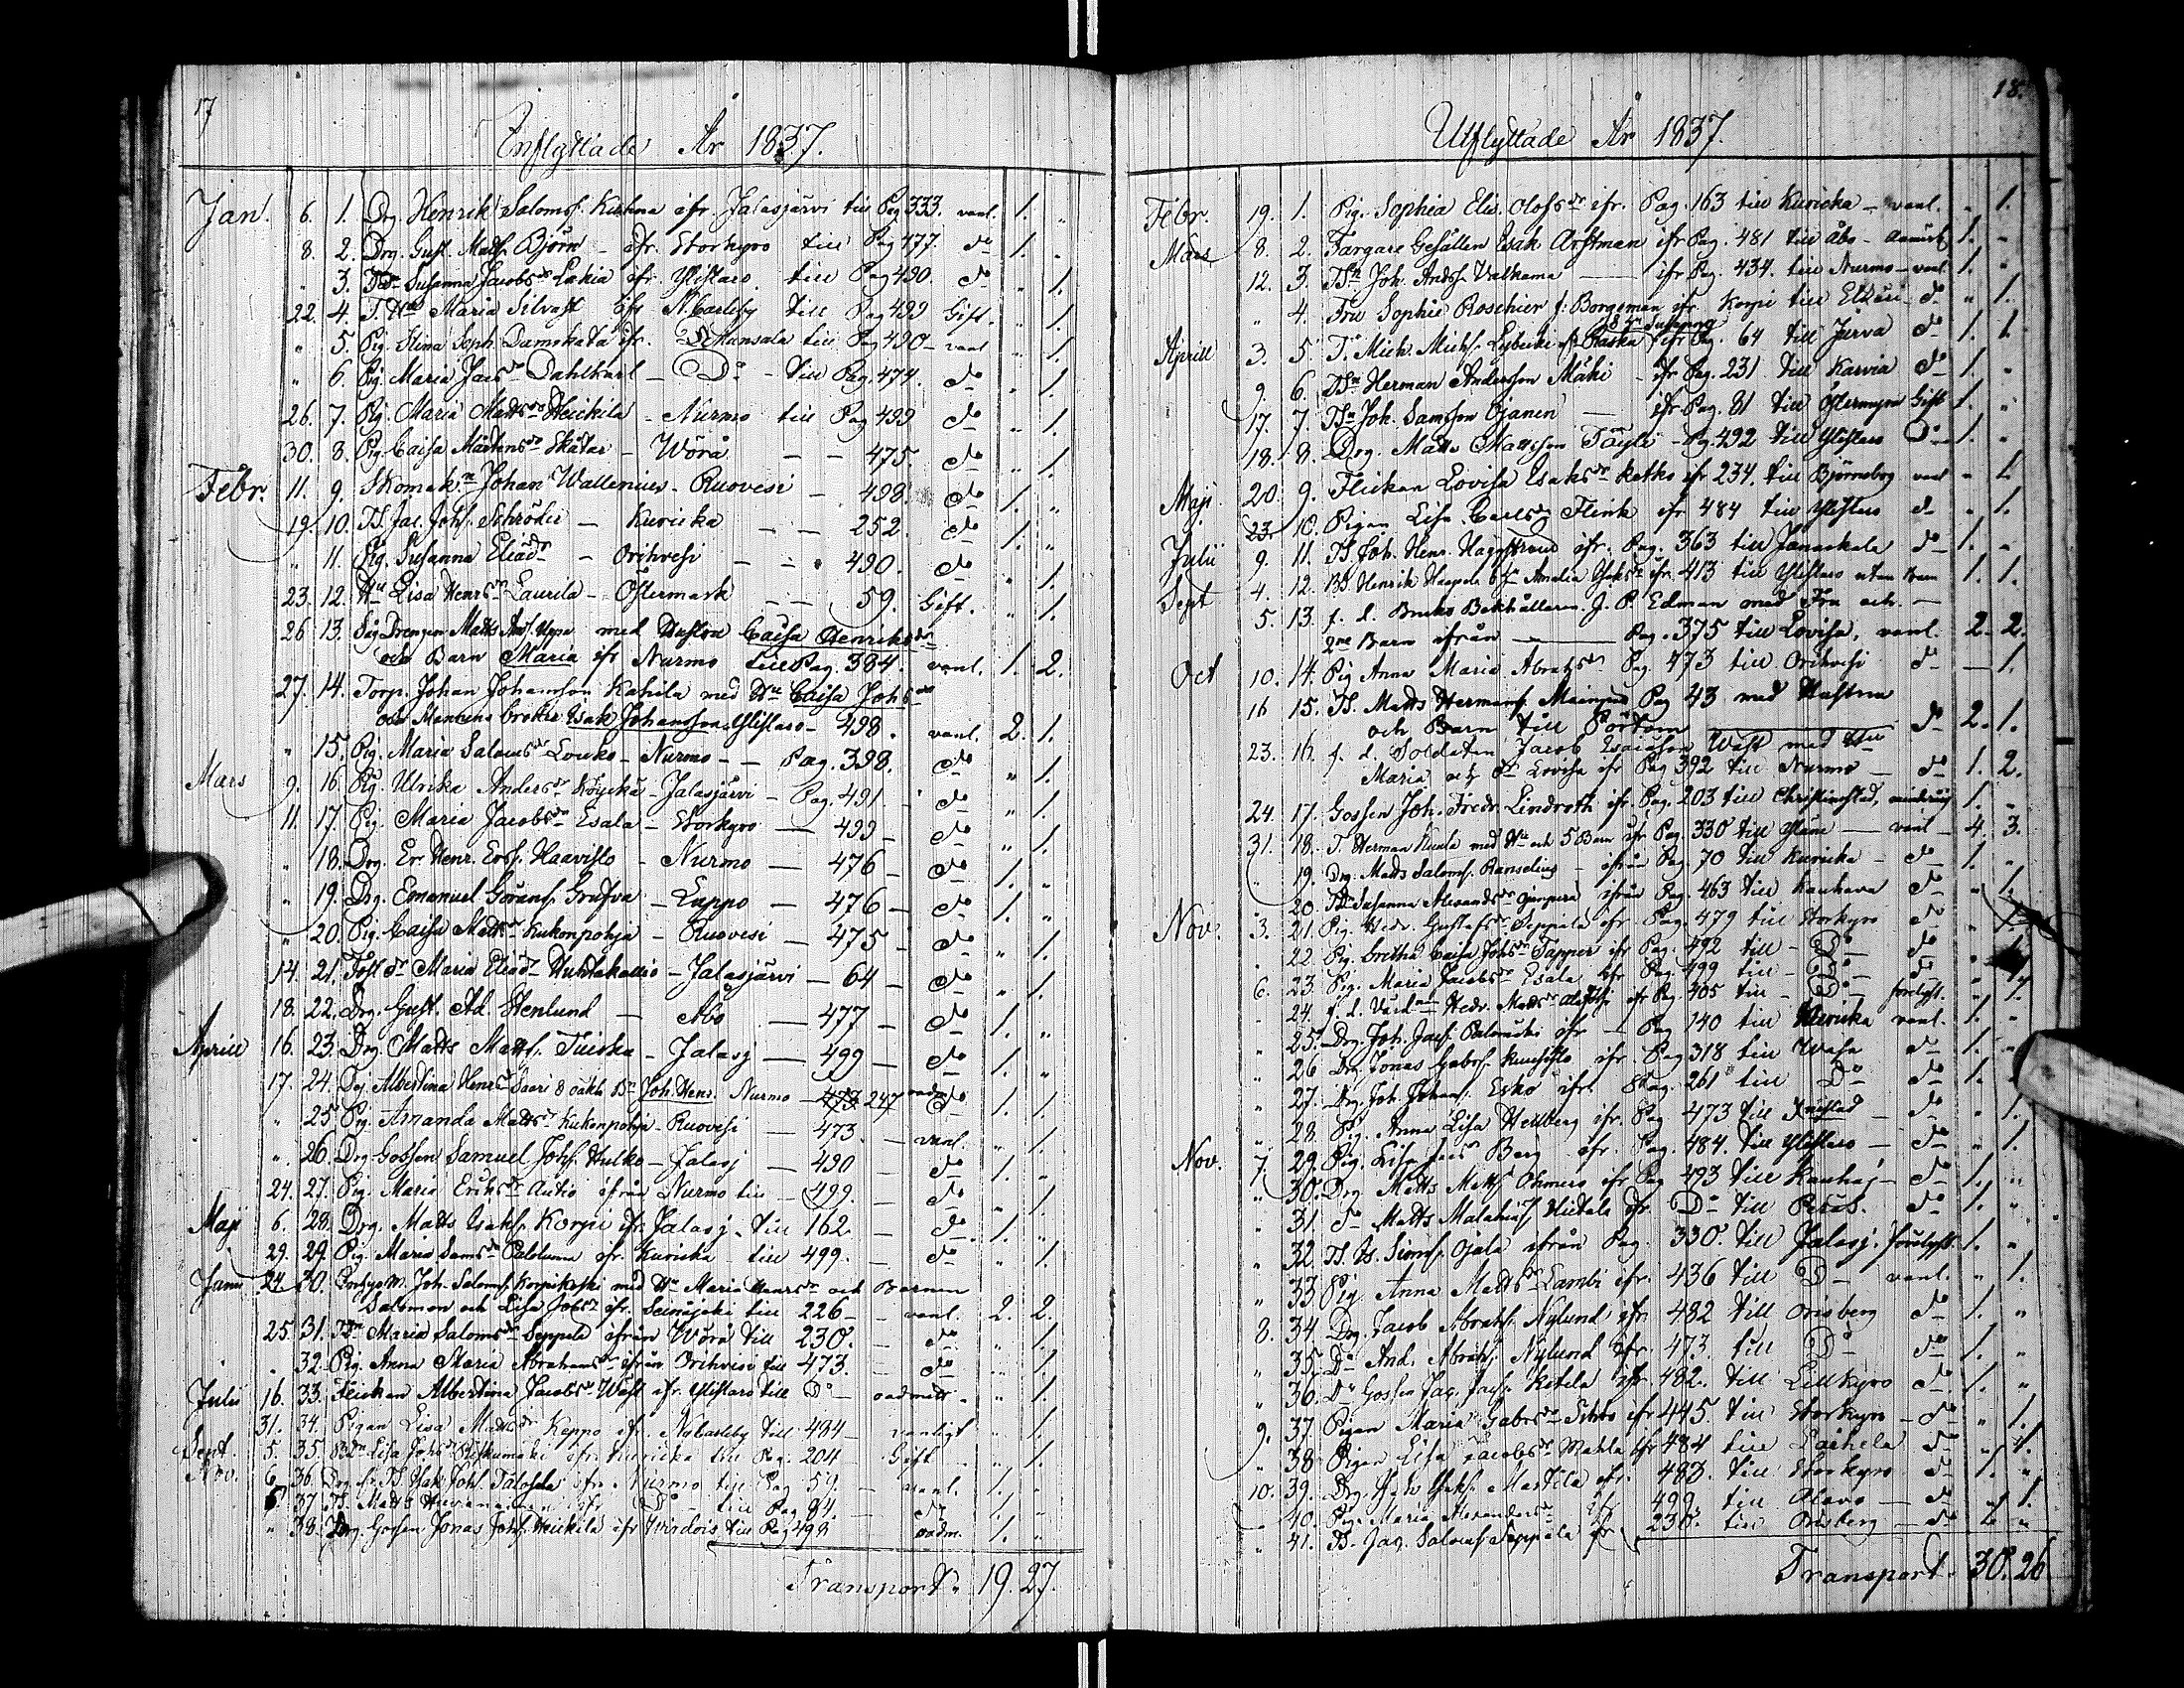 17
Inflyttade År 1837.
Jan. 6. 1. Drg. Henrik Saloms. ifr. Jalasjärvi till Pag 333. vanl. 1. "
8. 2. Drg. Gust. Matts. Björn - ifr. Storkyro till Pag 477. do 1. "
" 3. Susanna Jacobsdr Lakia ifr. Ylistaro till Pag 490. do " 1.
22. 4. Maria Silvast ifr N. Carleby till Pag 499 Gift. " 1.
" 5. Pig. Stina Soph. Damskata ifr. till Pag 490 - vanl " 1.
" 6. Pig. Maria Jacsdr Dahlkarl - Do - till Pag. 474. do " 1.
26. 7. Pig. Maria Mattsdr Heickilä - Nurmo till Pag 499 do " 1.
30. 8. Pig. Caisa Mårtensdr Skåtas - Wörå - - 475. do " 1.
Febr. 11. 9. Skomak. Johan Wallenius - Ruovesi - 498. do 1. "
19. 10. Jac. Johs. Schröder - Kuricka - - 252. do 1. "
" 11. Pig. Susanna Eliædr - Orihvesi - - 490. do " 1.
23. 12. Hu Lisa Henrsdr Laurila - Östermark - - 59. Gift. " 1.
26 13. Drengen Matts med Hustru Caisa Henriksdr
och Barn Maria ifr Nurmo till Pag. 384. vanl. 1. 2.
27. 14. Torp. Johan Johansson Kahila med Hu Caisa Johsdr
och Mannens broder Isak Johansson Ylistaro - 498. vanl. 2. 1.
" 15. Pig. Maria Salomsdr Louko - Nurmo - - Pag. 398. do " 1.
Mars 9. 16. Pig. Ulrika Andersdr Köyckä - Jalasjärvi - Pag. 491 - do " 1.
11. 17. Pig. Maria Jacobsdr Esala - Storkyro - 499 - do " 1.
" 18. Drg. Er. Henr. Ers. Haavisto - Nurmo - 476 - do 1. "
" 19. Drg. Emanuel Görans. Grafva - Lappo - 476 - do 1. "
" 20. Pig. Caisa Mattsdr Kukonpohja - Ruovesi - 475 - do " 1.
14. 21. Maria Eliædr Huhtakallio - Jalasjärvi - 64 - do " 1.
18. 22. Drg. Gust. Ad. Stenlund - Åbo - 477 - do 1. "
Aprill 16. 23. Drg. Matts Matts. - Jalasj - 499 - do 1. "
17. 24. Albertina Henrsdr Saari Joh. Henr. Nurmo - 473 247 do 1. 1.
" 25 Pig. Amanda Mattsdr Kukonpohja - Ruovesi - 473. - vanl. " 1.
" 26. Drg Gossen Samuel Johs. Hulko - Jalasj - 490 - do 1. "
24. 27. Pig. Maria Eriksdr Autio ifrån Nurmo till - 499. - do " 1.
Maji 6. 28. Drg. Matts Isaks. Korpi ifr. Jalasj. till 162. - do 1. "
29. 29. Pig. Maria Samsdr Palolunna ifr. Kuricka till 499. - do " 1.
Junii 24 30. Joh. Saloms. Korpikoski med Hu Maria Henrsdr och Barnen
Salomon och Lisa Johsdr ifr. Seinäjoki till 226 - - vanl. 2. 2.
25. 31. Maria Salomsdr Seppelä ifrån Wörå till 230. - do " 1.
" 32. Pig. Anna Maria Abrahamsdr ifrån Orihvesi till 473. - do " 1.
Julii 16. 33. Flickan Albertina Jacobsdr Wäst ifr. Ylistaro till Do - oadmitt. " 1.
31. 34. Pigan Lisa Mattsdr Keppo ifr. Ny Carleby till 484 - vanligt " 1.
Sept. 5. 35. Lisa Johsdr ifr. Kuricka till Pag. 204 - Gift " 1.
Nov. 6. 36. Isak Johs. ifr. Nurmo till Pag 59. - vanl. 1. "
37. Matts ifr. Do - till Pag. 84. - do 1. "
" 38. Drg. Gossen Jonas Johs. Heickilä ifr Wirdois till Pag 498 oadm. 1. "
Transport. 19. 27.
18.
Utflyttade År 1837.
Febr. 19. 1. Pig. Sophia Elis. Olofsdr ifr. Pag. 163 till Kuricka - vanl. " 1.
Mars 8. 2. Färgare Gesällen Isak Arstman ifr Pag. 481 till Åbo - 1. "
12. 3. Joh. Ands. Valkama - ifr Pag. 434. till Nurmo - vanl. 1. "
" 4. Fru Sophie Roschier f: Borgeman ifr. Korpi till Etseri - do " 1.
Susanna
Aprill 3. 5. Mich. Michs. ifr Pag. 64 till Jurva do 1. 1.
9. 6. Herman Andersson Mäki - ifr Pag. 231 till Karvia do 1. "
17. 7. Joh. Samsson Ojanen - ifr Pag. 81 till Östermyra Gift 1. "
18. 8. Drg. Matts Mattsson Töyli - Pag. 492 till Ylistaro Do 1. "
Maji 20. 9. Flickan Lovisa Esaksdr Ketko ifr 234. till Björneborg vanl " 1.
23. 10. Pigan Lisa Carlsdr Flink ifr 484 till Ylistaro do " 1.
Julii 9. 11. Joh. Henr. Häggstrand ifr. Pag. 363 till Janackala do 1. "
Sept 4. 12. Henrik Amalia ifr. 413 till Ylistaro utan 1. 1.
5. 13. f. d. Bruks Bokhållaren J. P. Edman med Fru och -
2ne Barn ifrån - Pag. 375 till Lovisa, vanl. 2. 2.
Oct 10. 14. Pig Anna Maria Abrahsdr Pag. 473 till Orihvesi do - 1.
16 15. Matts Hermans. Pag 43 med Hustru
och Barn till Pörtom do 2. 1.
23. 16. f. d. Soldaten Jacob Esaiasson Wäst med Hu
Maria och dr Lovisa ifr Pag 392 till Nurmo - do 1. 2.
24. 17. Gossen Joh. Fredr. Lindroth ifr. Pag. 203 till Christinestad, 1. "
31. 18. T. Herman Kuula med Hu och 5 Barn ifr Pag. 330 till - vanl - 4. 3.
" 19. Drg. Matts Saloms. Ranselius - ifrån Pag. 70 till Kuricka - do 1. "
" 20. Susanna Alexandsdr ifrån Pag. 463 till Kauhava do " 1.
Nov. 3. 21. Pig. Hedv. Gustafsdr Seppälä ifr. Pag. 479 till Storkyro do " 1.
22. Pig. Gretha Caisa Johsdr Tapper ifr Pag. 492 till - Do - do " 1.
6. 23. Pig. Maria Jacobsdr Esala ifr Pag. 499 till - Do - do " 1.
" 24. f. d. Hedv. Mattsdr ifr Pag. 405 till - Do - " 1.
" 25. Drg. Joh. Jacs. Palomäki ifr - Pag 140 till Kuricka vanl. 1. "
" 26 Drg. Jonas Gabrs. ifr. Pag 318 till Wasa do 1. "
" 27. Drg. Joh. Johans. Esko ifr. Pag. 261 till Do do 1. "
" 28. Pig. Anna Lisa Hellberg ifr. Pag 473 till do " 1.
Nov. 7. 29. Pig. Lisa Jacsdr Berg ifr. Pag. 484. till Ylistaro - do " 1.
" 30. Drg. Matts Matts. Ohmero ifr Pag 493 till Kauhaj - do 1. "
" 31. do Matts Malakias. Hietala ifr. Do till Peräs. do 1. "
" 32. Is. Simss. Ojala ifrån Pag. 330. till Jalasj. 1. "
" 33 Pig Anna Mattsdr Lambi ifr. 436 till D - vanl. " 1.
8. 34. Drg. Jacob Abrahs. Nylund ifr. 482 till Orisberg do 1. "
" 35. Do And. Abrahs. Nylund ifr. 473. till Do do 1. "
" 36. Do Gossen Jac. Jacs. Ketola ifr 482. till Lillkyro do. 1. "
9. 37. Pigan Maria Gabrsdr ifr 445. till Storkyro - do " 1.
" 38 Pigan Lisa Jacobsdr Mahla ifr 484 till Laihela do " 1.
10. 39. Drg. Isaks. Marttila ifr. 483. till Storkyro do 1. "
" 40. Pig. Maria Alexandersdr ifr 499. till Alavo - do " 1.
" 41. Jac. Saloms Seppälä ifr 230. till Orisberg - do 1. "
Transport. 30. 26